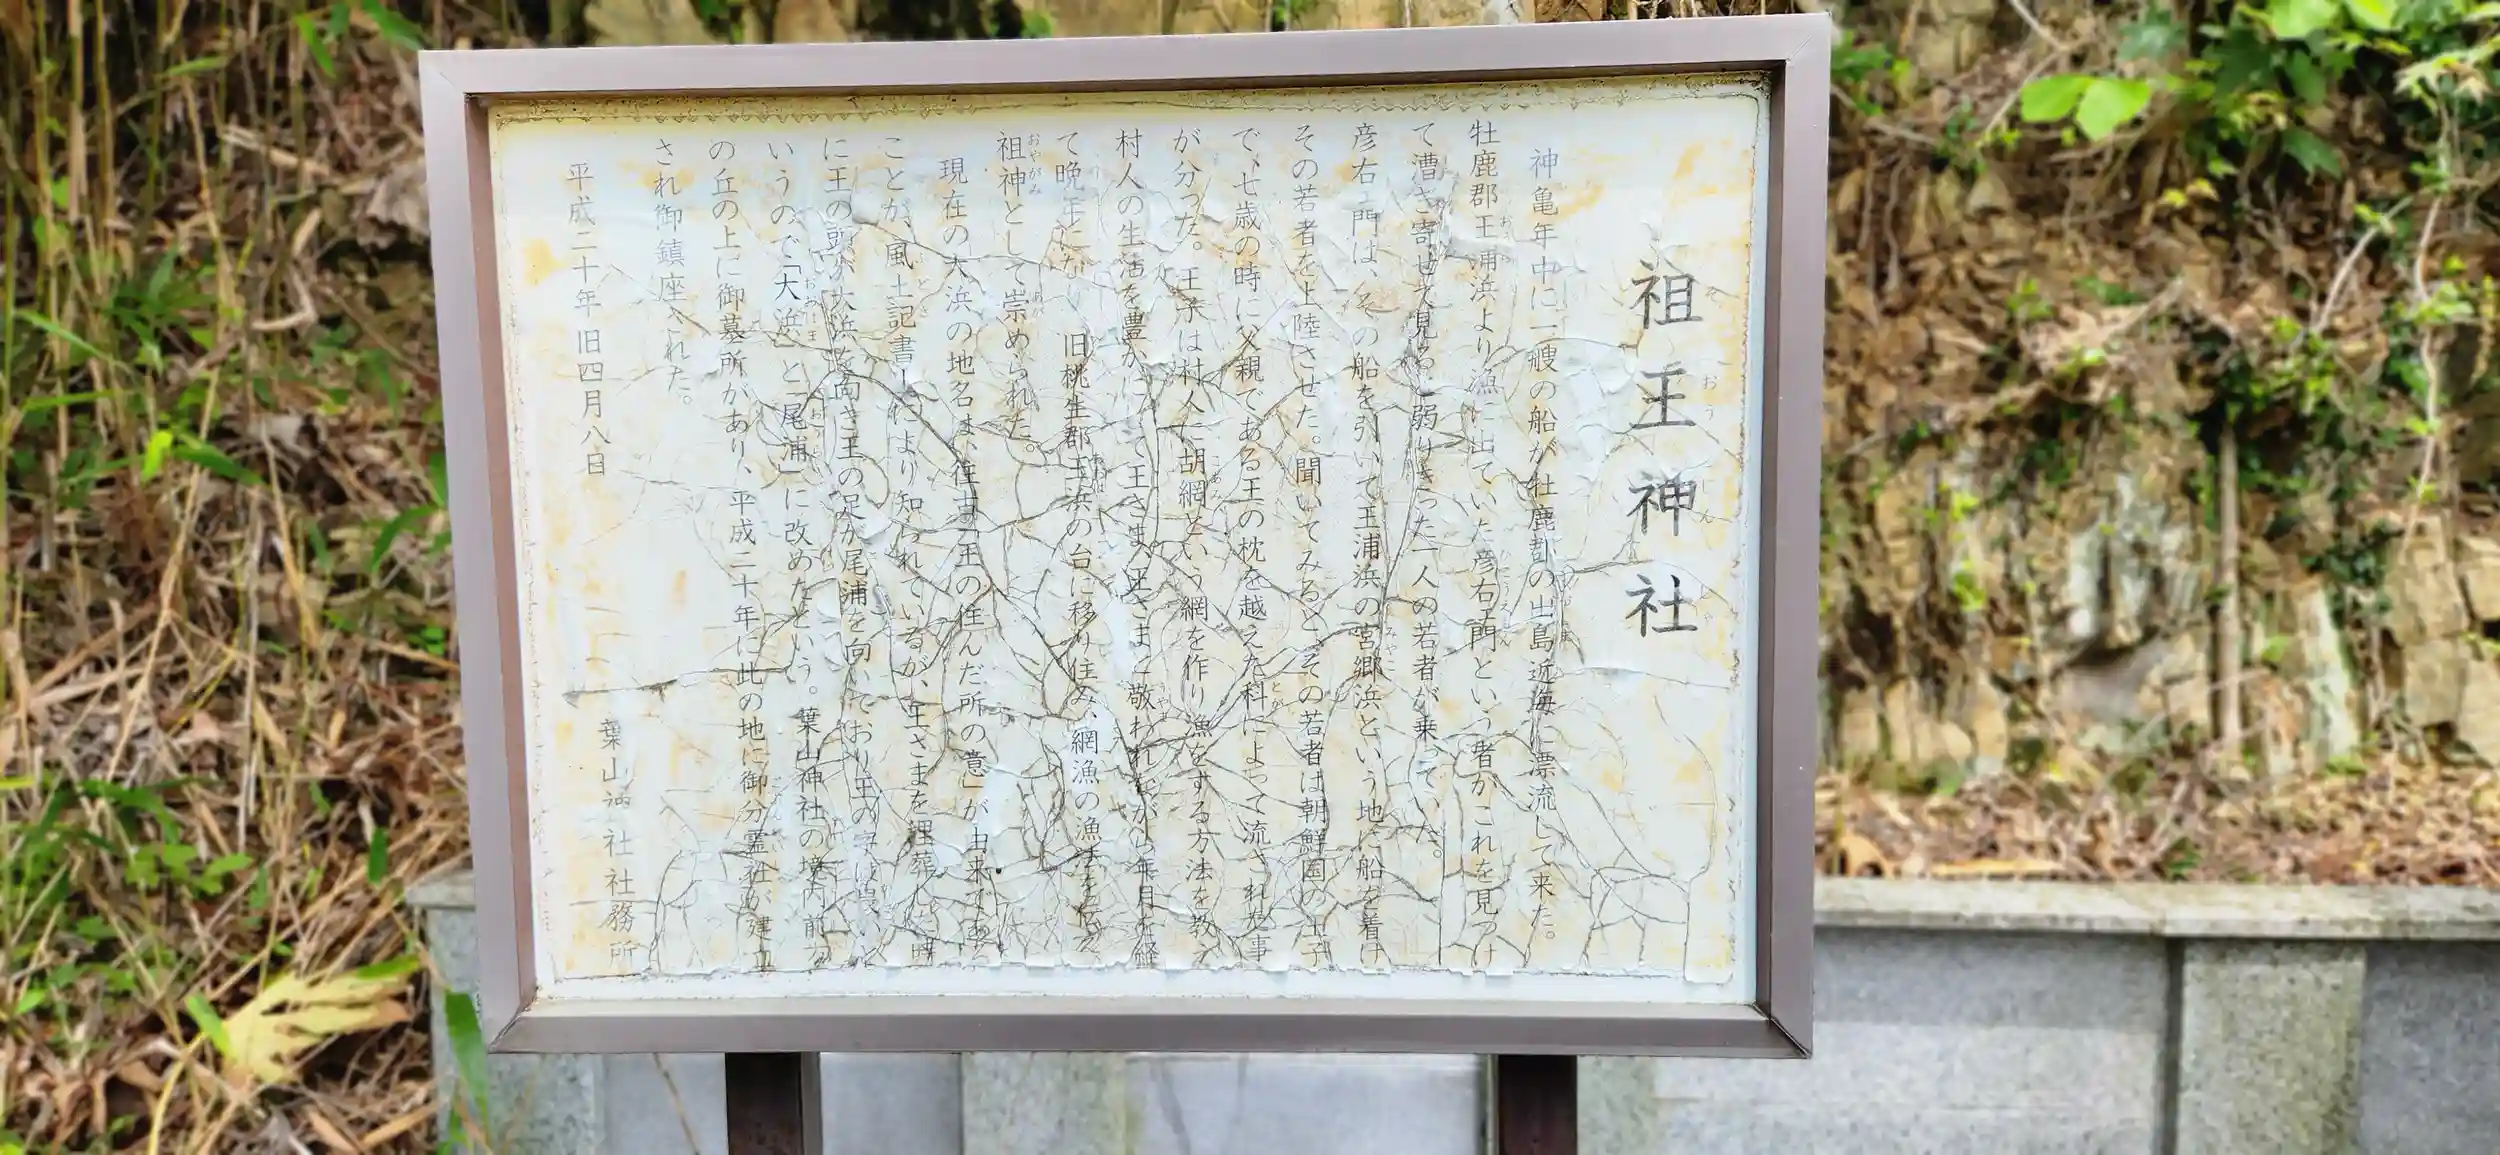 祖王神社
神亀年中に一艘の船が牡鹿郡の出島近海に漂流して来た。
牡鹿郡王浦浜より漁に出ていた彦右ェ門という者がこれを見つけ
て漕ぎ寄せて見ると弱りきった一人の若者が乗っていた。
彦右ェ門は、その船を引いて王浦浜の宮郷浜という地に船を着け
その若者を上陸させた。聞いてみると、その若者は朝鮮国の王子
で、七歳の時に父親である王の枕を越えた科によって流され事
が分った。王子は村人に胡網という網を作り漁をする方法を教え
村人の生活を豊かにして王さま王さまと敬われ年月を経
て晩年になり旧桃生郡王浜の台に移り住み、網漁の漁法を伝え、
祖神として崇められた。
現在の大浜の地名は、往古「王の住んだ所の意」が由来である
ことが、風土記書上により知られているが、王さまを埋葬した時
に王の頭が大浜を向き王の足が尾浦を向いており王の字は畏いと
いうので「大浜」と「尾浦」に改めたという。葉山神社の境内前方
の丘の上に御墓所があり、平成二十年に此の地に御分霊社が建立
され御鎮座された。
平成二十年旧四月八日
葉山神社社務所